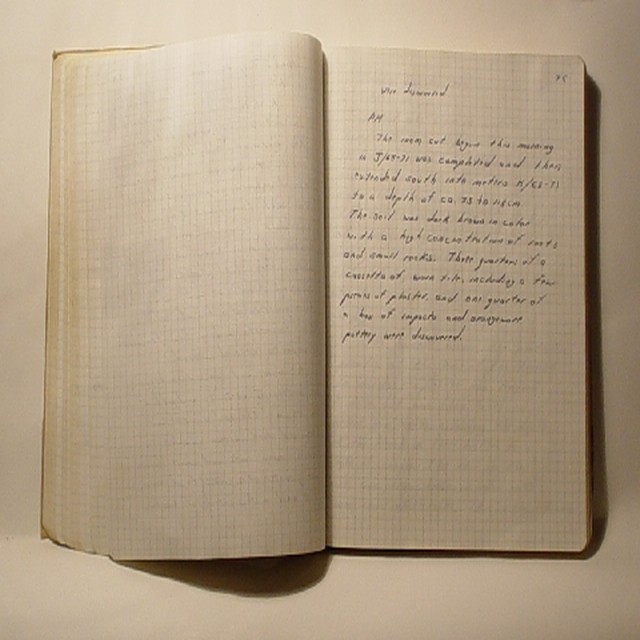 were discovered
PM
The room cut begun this morning
in J/69-71 was completed and then
extended south into metres K/69-71
to a depth of ca. 75 to cm
The soil was dark brown in color
with a high concentration of roots
and small rocks. Three quarters of a
cassetta of tile, including a few
pieces of plaster, and one quarter of
a box of impasto and orangeware
pottery were discovered.